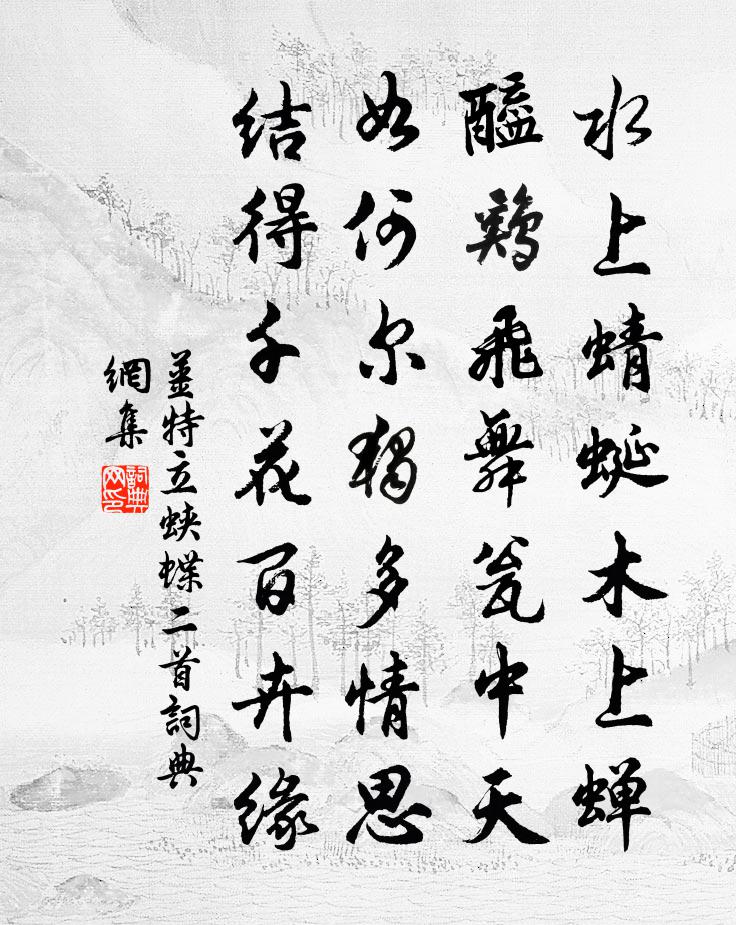 水上蜻蜒木上蝉
醯鸡飛舞瓮中天
如何尔独多情思
结得千花百卉缘
姜特立蛱蝶二首詞典
網集
詞典網印